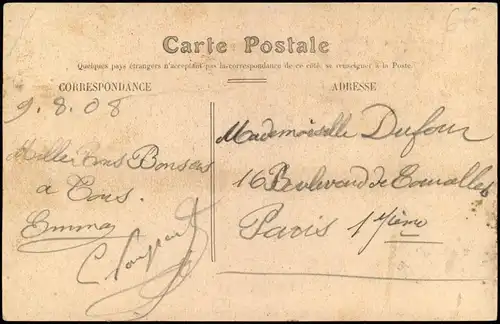 Carte Postale
Quelques pays étrangers n'acceptant pas la correspondance de ce côté, se renseigner à la Poste.
CORRESPONDANCE
ADRESSE
9.8.08
Mademoiselle Dufour
Bons
à Tous.
16 Boulevard de
Emma
Paris 17ème